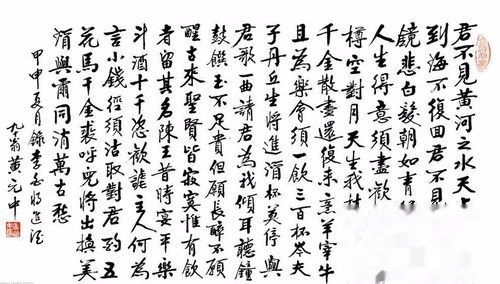 君不見黃河之水天上
到海不復回君不見
鏡悲白髮朝如青
人生得意須盡歡
樽空對月天生我材
千金散盡還復來烹羊宰牛
且為樂會須一飲三百杯岑夫
子丹丘生將進酒杯莫停與
君歌一曲請君為我傾耳聽鐘
鼓饌玉不足貴但願長醉不願
醒古來聖賢皆寂寞惟有飲
者留其名陳王昔時宴平樂
斗酒十千恣歡謔主人何為
言少錢徑須沽取對君酌五
花馬千金裘呼兒將出換美
酒與爾同消萬古愁
甲申夏月錄李白將進酒
九十翁黃元中